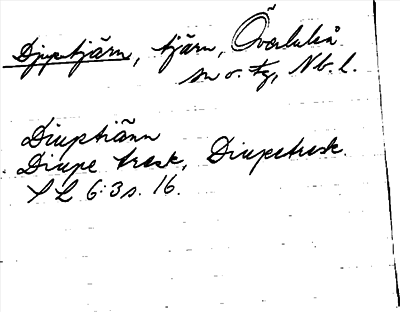 Djuptjärn, tjärn, Överluleå
sn o. tg, Nb. l.
Diuptiänn
Diupe tresk, Diupetresk.
LL 6:3 s. 16.